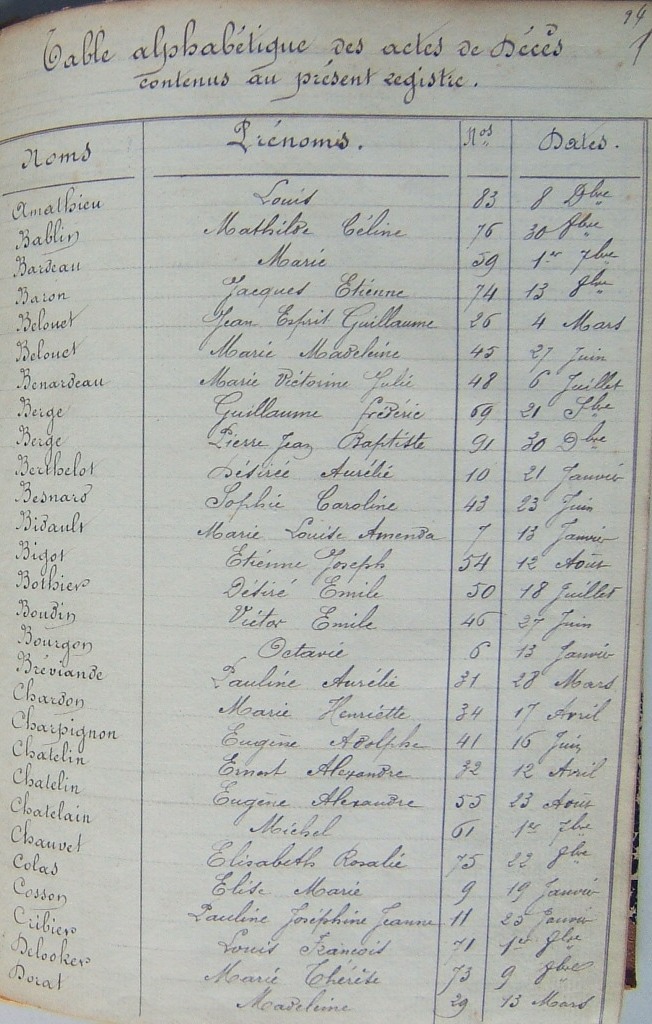 94
Table alphabétique des actes de Décès
contenus au présent registre.
Noms Prénoms. Nos Dates.
Amathieu Louis 83 8 Dbre
Bablin Mathilde Céline 76 30 8bre
Bardeau Marie 59 1er 7bre
Baron Jacques Etienne 74 13 8bre
Belouet Jean Esprit Guillaume 26 4 Mars
Belouet Marie Madeleine 45 27 Juin
Benardeau Marie Victorine Julie 48 6 Juillet
Berge Guillaume frédéric 69 21 7bre
Berge Pierre Jean Baptiste 91 30 Dbre
Berthelot Désirée Aurélie 10 21 Janvier
Besnard Sophie Caroline 43 23 Juin
Bidault Marie Louise Amenda 7 13 Janvier
Bigot Etienne Joseph 54 12 Août
Bothier Désiré Emile 50 18 Juillet
Boudin Victor Emile 46 27 Juin
Bourgon Octavie 6 13 Janvier
Bréviande Pauline Aurélie 31 28 Mars
Chardon Marie Henriette 34 17 Avril
Charpignon Eugène Adolphe 41 16 Juin
Chatelin Ernest Alexandre 32 12 Avril
Chatelin Eugène Alexandre 55 23 Août
Chatelain Michel 61 1er 7bre
Chauvet Elisabeth Rosalie 75 22 8bre
Colas Elise Marie 9 19 Janvier
Cosson Pauline Joséphine Jeanne 11 25 Janvier
Cribier Louis François 71 1er 8bre
Delooker Marie Thérèse 73 9 8bre
Dorat Madeleine 29 13 Mars